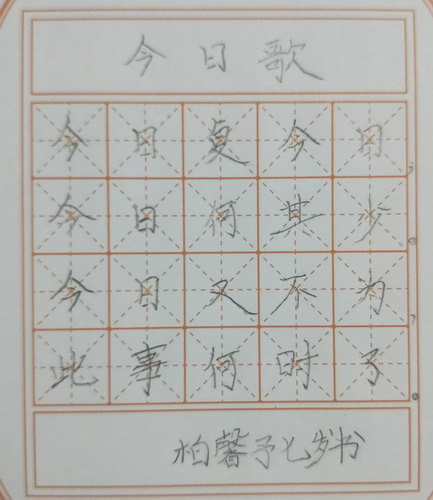 今日歌
今日复今日，
今日何其少。
今日又不为，
此事何时了。
柏馨予七岁书